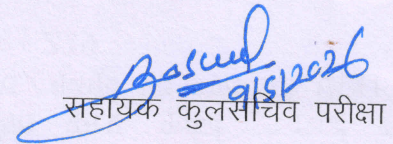 9/5/2026
सहायक कुलसचिव परीक्षा